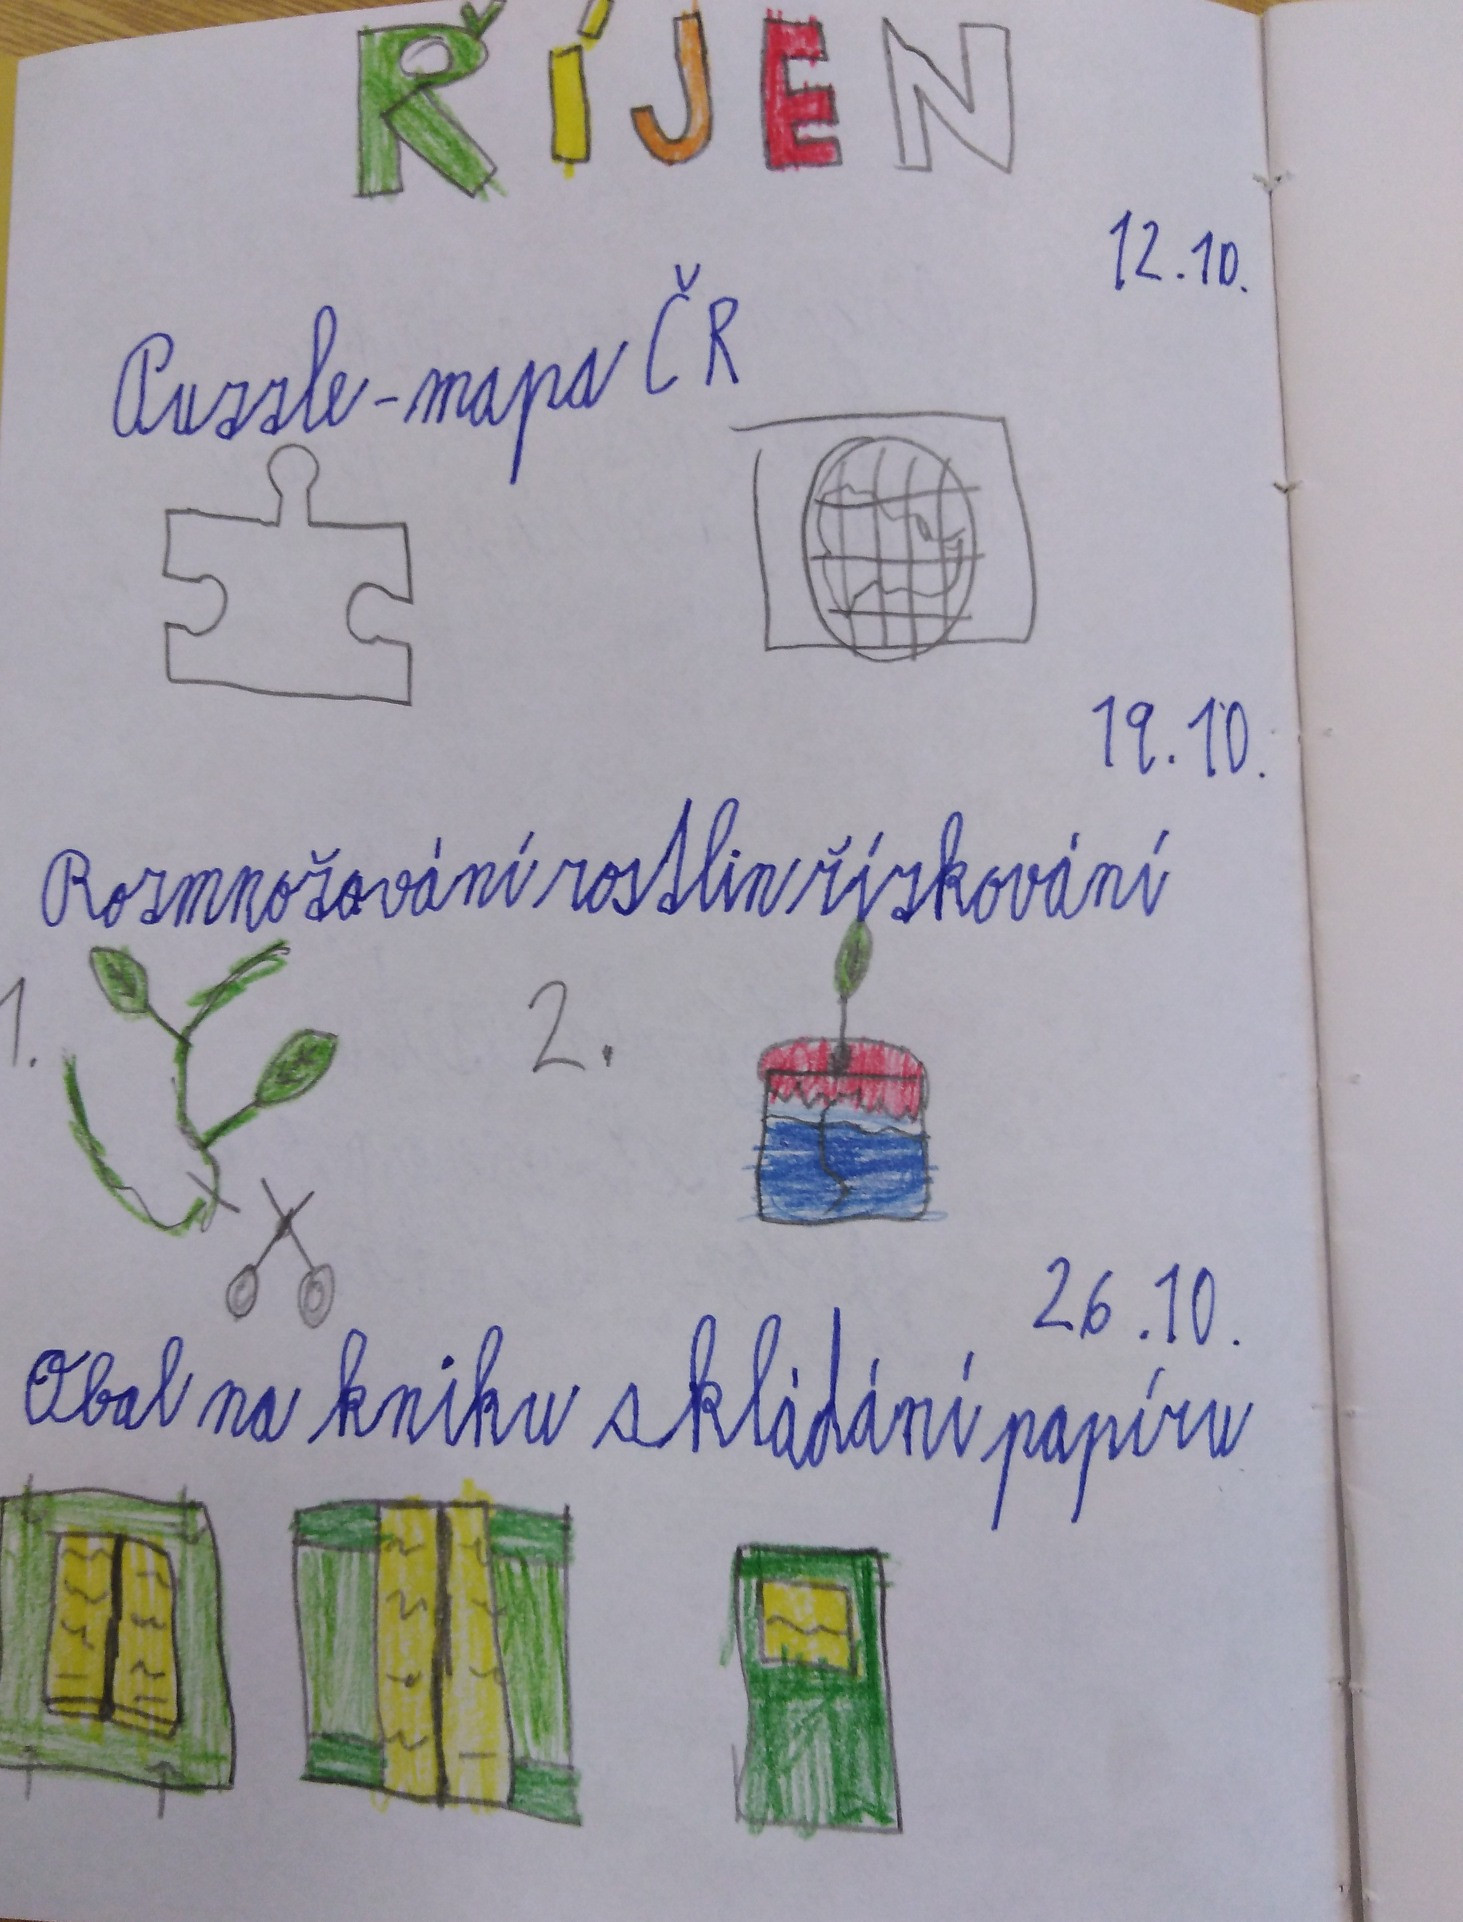 ŘÍJEN
12.10.
Puzzle-mapa ČR
19.10.
Rozmnožování rostlin řízkování
1.
2.
26.10.
Obal na kniku skládání papíru